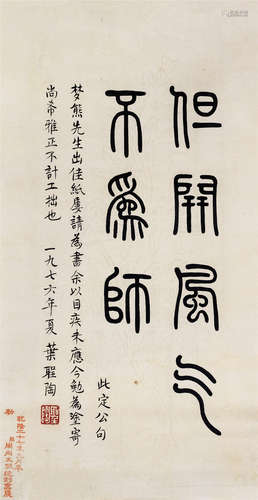 但開風氣
不為師
此定公句
梦熊先生出佳紙屢請為書余以目疾未應今勉為塗寄
尚希雅正不計工拙也 一九七六年夏 葉聖陶